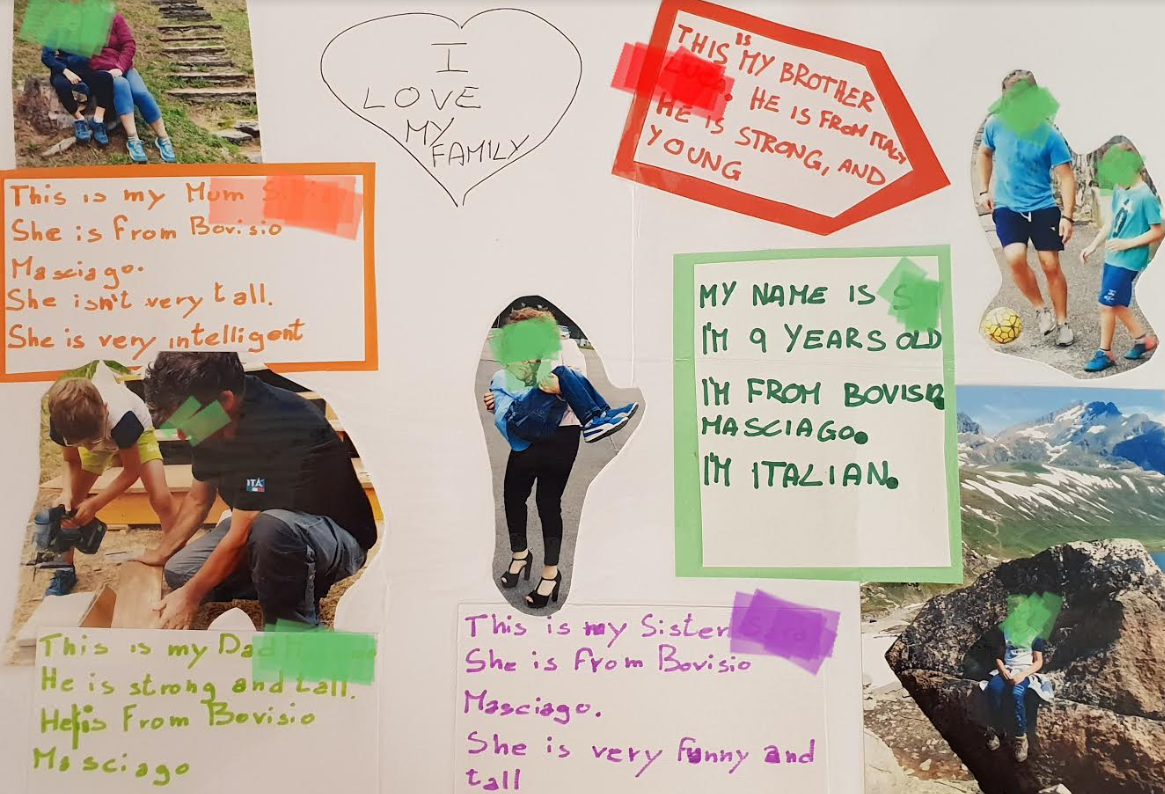 I
LOVE
MY
FAMILY
THIS IS MY BROTHER
HE IS FROM ITALY
HE IS STRONG, AND
YOUNG
This is my Mum
She is from Bovisio
Masciago.
She isn't very tall.
She is very intelligent
MY NAME IS
I'M 9 YEARS OLD
I'M FROM BOVISIO
MASCIAGO.
I'M ITALIAN.
ITA
This is my Dad
He is strong and tall.
He is From Bovisio
Masciago
This is my Sister
She is From Bovisio
Masciago.
She is very funny and
tall